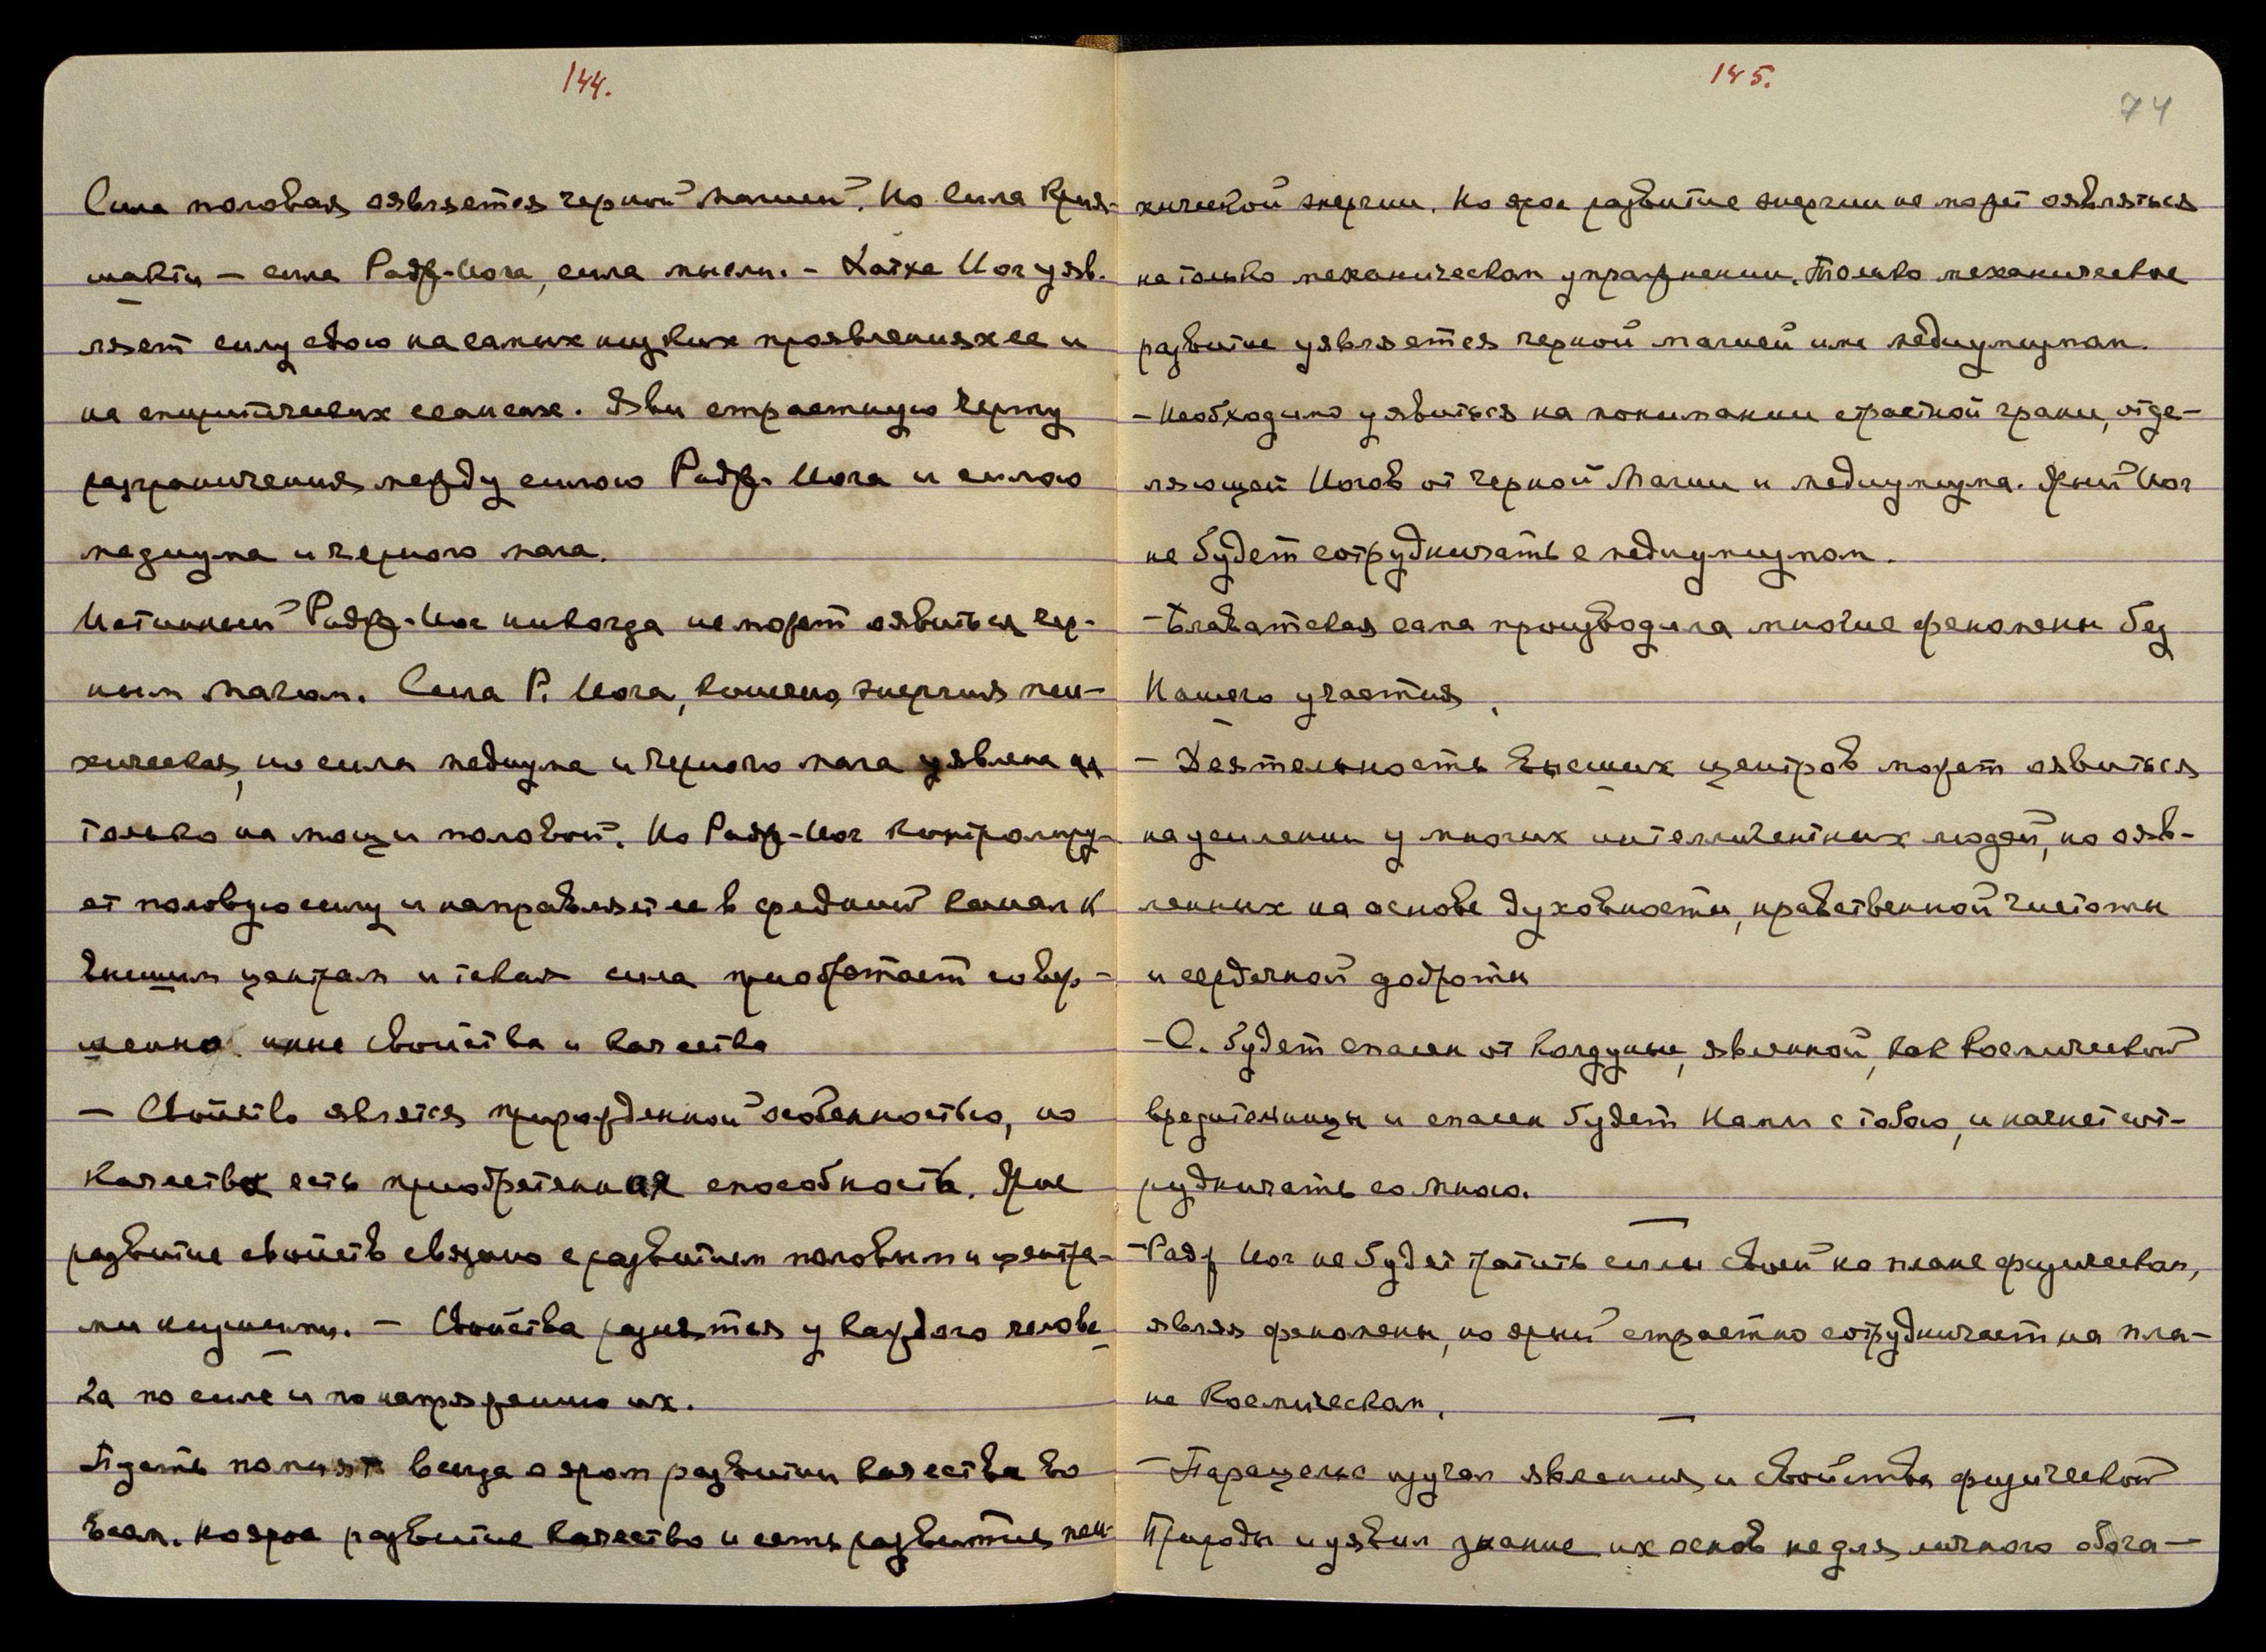 144.
Сила половая оявляется черной магией. Но сила Крия-
шакти — сила Радж-Иога, сила мысли. – Хатха Иог уяв-
ляет силу свою на самых низких проявлениях ее и
на спиритических сеансах. Яви страстную черту
разграничения между силою Радж-Иога и силою
медиума и черного мага.
Истинный Радж-Иог никогда не может оявиться чер-
ным магом. Сила Р. Иога, конечно, энергия пси-
хическая, но сила медиума и черного мага уявлена
только на мощи половой. Но Радж-Иог контролиру-
ет половую силу и направляет ее в средний канал к
Высшим центрам и такая сила приобретает совер-
шенно иные свойства и качества
— Свойство является прирожденной особенностью, но
качество есть приобретенная способность. Ярое
развитие свойств связано с развитием половым и центра-
ми низшими. — Свойства разнятся у каждого челове
ка по силе и по напряжению их.
Надо помнить всегда о яром развитии качества во
всем. Но ярое развитие качества и есть развитие пси-
145.
74
хической энергии. Но ярое развитие энергии не может оявляться
на только механическом упражнении. Только механическое
развитие уявляется черной магией или медиумизмом.
– Необходимо уявиться на понимании страстной грани, отде-
ляющей Иогов от черной Магии и медиумизма. Ярый Иог
не будет сотрудничать с медиумизмом.
– Блаватская сама производила многие феномены без
Нашего участия.
– Деятельность Высших центров может оявиться
на усилении у многих интеллигентных людей, но ояв-
ленных на основе духовности, нравственной чистоты
и сердечной доброты
– О. будет спасен от колдуньи, явленной, как космической
вредительницы и спасен будет Нами с тобою, и начнет сот-
рудничать со Мною.
– Радж Иог не будет тратить силы свои на плане физическом,
являя феномены, но ярый страстно сотрудничает на пла-
не Космическом.
– Парацельс изучал явления и свойства физической
Природы и уявил знание их основ не для личного обога—